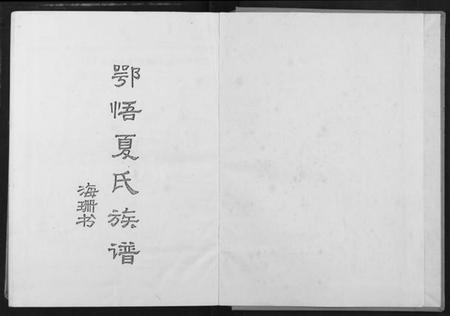 鄂悟夏氏族谱
海珊书